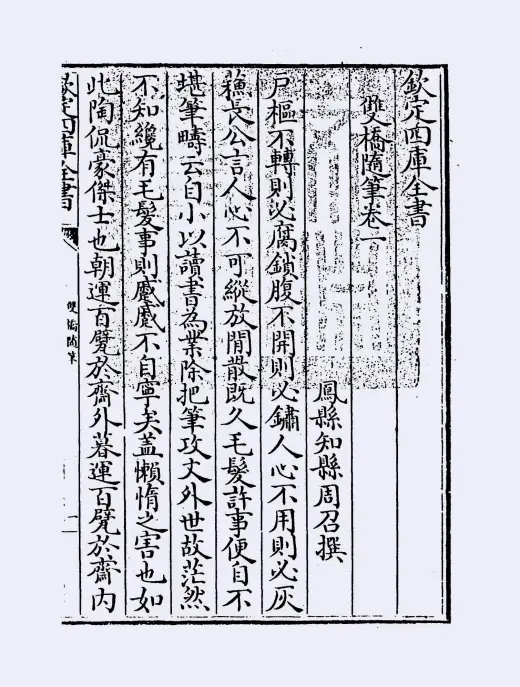 欽定四庫全書
雙橋隨筆卷一
鳳縣知縣周召撰
戶樞不轉則必腐鎖腹不開則必鏽人心不用則必灰
蘓長公言人心不可縱放閒散既久毛髮許事便自不
堪筆疇云自小以讀書為業除把筆攻文外世故茫然
不知纔有毛髮事則慼慼不自寧矣盖懶惰之害也如
此陶侃豪傑士也朝運百甓於齋外暮運百甓於齋内
欽定四庫全書
雙橋隨筆
一